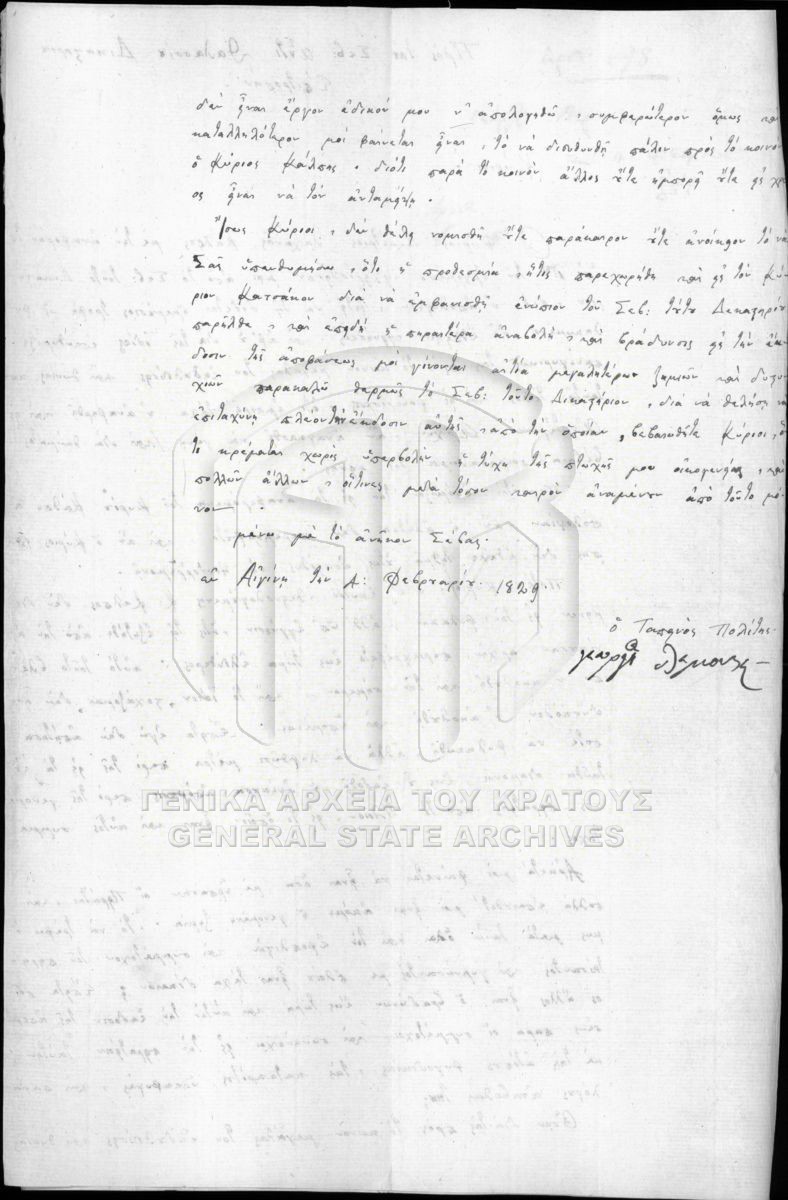 δὲν εἶναι ἔργον ἐδικόν μου ν' ἀπολογηθῶ, συμφερώτερον ὅμως καὶ
καταλληλότερον μοὶ φαίνεται εἶναι, τὸ νὰ διευθυνθῇ πάλιν πρὸς τὸ κοινὸν
ὁ Κύριος Κάλπης, διότι παρὰ τὸ κοινὸν ἄλλος οὔτε ἠμπορεῖ οὔτε εἰς χρέ
ος εἶναι νὰ τὸν ἀνταμείψῃ.
Ἴσως Κύριοι, δὲν θέλει νομισθῆ οὔτε παράκαιρον οὔτε ἀνοίκειον τὸ νὰ
Σᾶς ὑπενθυμήσω, ὅτι ἡ προθεσμία, ἥτις παρεχωρήθη καὶ εἰς τὸν Κύ-
ριον Κατσάκον διὰ νὰ ἐμφανισθῇ ἐνώπιον τοῦ Σεβ: τούτου Δικαστηρίου
παρῆλθε, καὶ ἐπειδὴ ἡ περαιτέρω ἀναβολὴ, καὶ βράδυνσις εἰς τὴν ἔκ-
δοσιν τῆς ἀποφάσεως μοὶ γίνονται αἰτία μεγαλητέρων ζημιῶν καὶ δυςυ-
χιῶν παρακαλῶ θερμῶς τὸ Σεβ: τοῦτο Δικαστήριον, διὰ νὰ θελήσῃ νὰ
ἐπιταχύνῃ πλέον τὴν ἔκδοσιν αὐτῆς, ἀπὸ τὴν ὁποίαν, βεβαιωθῆτε Κύριοι, ὅ
τι κρέμαται χωρὶς ὑπερβολὴν ἡ τύχη τῆς πτωχῆς μου οἰκογενείας, καὶ
πολλῶν ἄλλων, οἵτινες μετὰ τόσον καιρὸν ἀναμένουν ἀπὸ τοῦτο μό-
νον.
μένω μὲ τὸ ἀνῆκον Σέβας.
ἐν Αἰγίνῃ τὴν Α: Φεβρουαρίου. 1829.
ὁ Ταπεινὸς Πολίτης.
ΓΕΝΙΚΑ ΑΡΧΕΙΑ ΤΟΥ ΚΡΑΤΟΥΣ
GENERAL STATE ARCHIVES